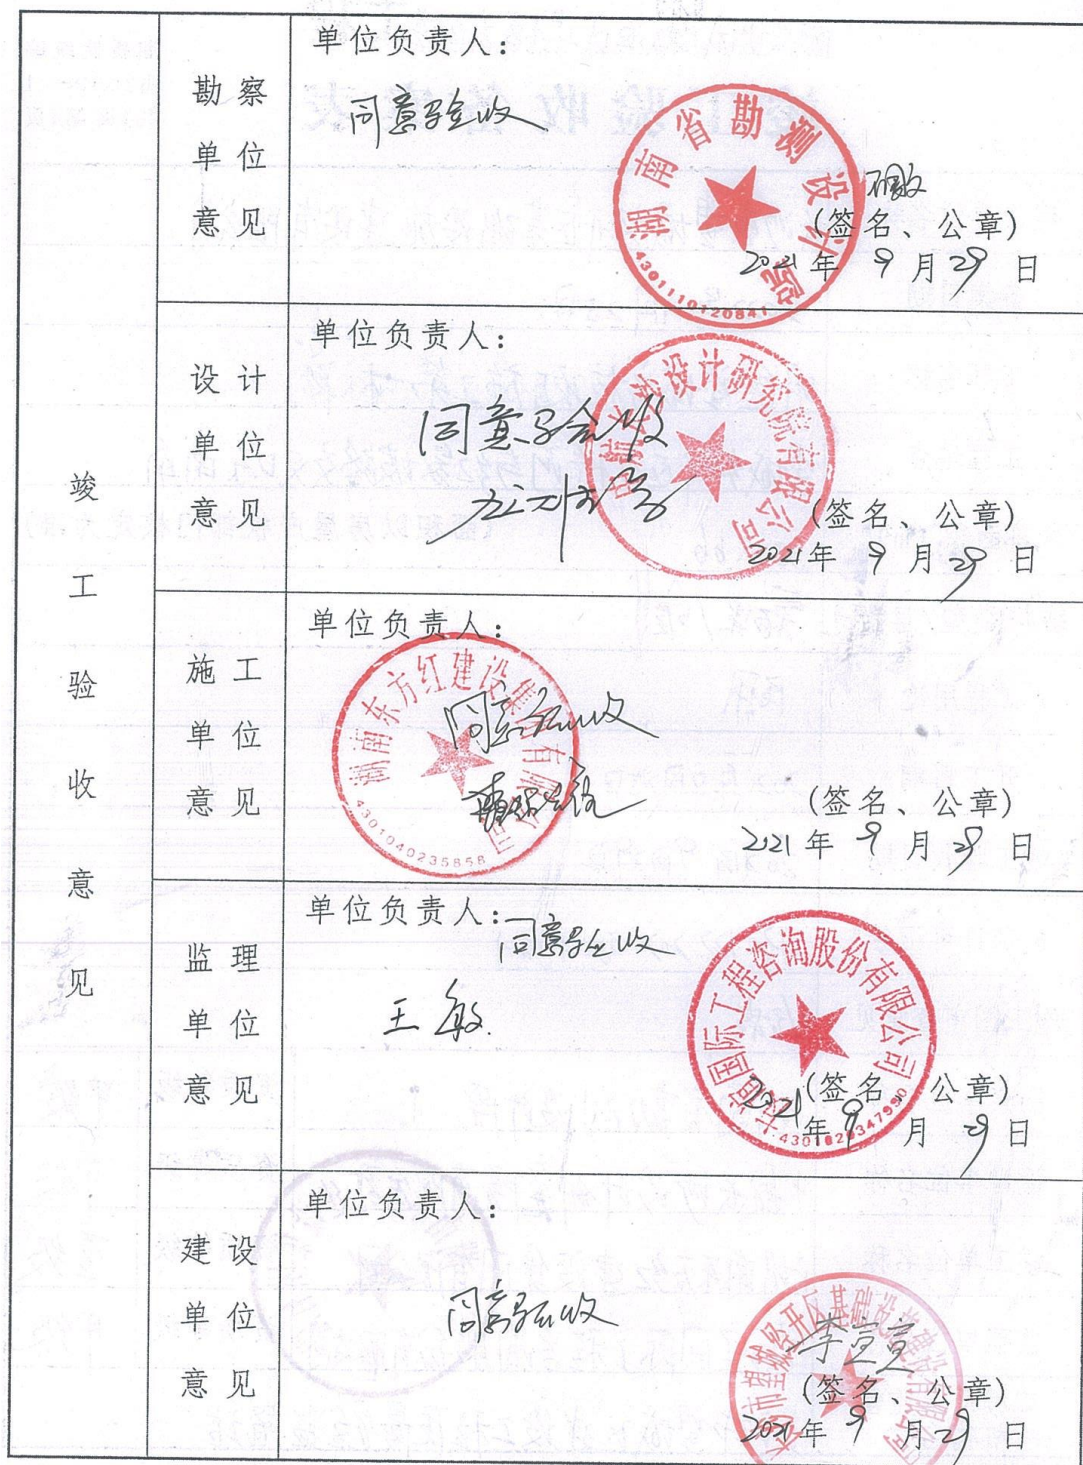 竣工验收意见
勘察单位意见
单位负责人：
同意验收
湖南省勘测设计院
4301110120841
(签名、公章)
2021年 9 月 29 日
设计单位意见
单位负责人：
同意验收
中航长沙设计研究院有限公司
(签名、公章)
2021年 9 月 29 日
施工单位意见
单位负责人：
同意验收
湖南东方红建设集团有限公司
4301040235858
(签名、公章)
2021年 9 月 29 日
监理单位意见
单位负责人：
同意验收
王敏
国际工程咨询股份有限公司
(签名、公章)
2021年 9 月 29 日
建设单位意见
单位负责人：
同意验收
市望城经开区基础设施建设有限公司
李宣宣
(签名、公章)
2021年 9 月 29 日